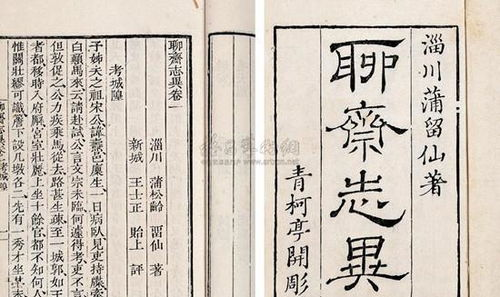 淄川蒲留仙著
聊齋志異
青柯亭開彫
聊齋志異卷一
淄川 蒲松齡 留仙 著
新城 王士正 貽上 評
考城隍
予姊夫之祖宋公諱燾邑廩生一日病臥見吏持牒
白顛馬來云請赴試公言文宗未臨何遽得考吏不言
但敦促之公力疾乘馬從去路甚生疎至一城郭如王
者都移時入府廨宮室壯麗上坐十餘官都不知何人
惟關壯繆可識簷下設几墩各二先有一秀才坐